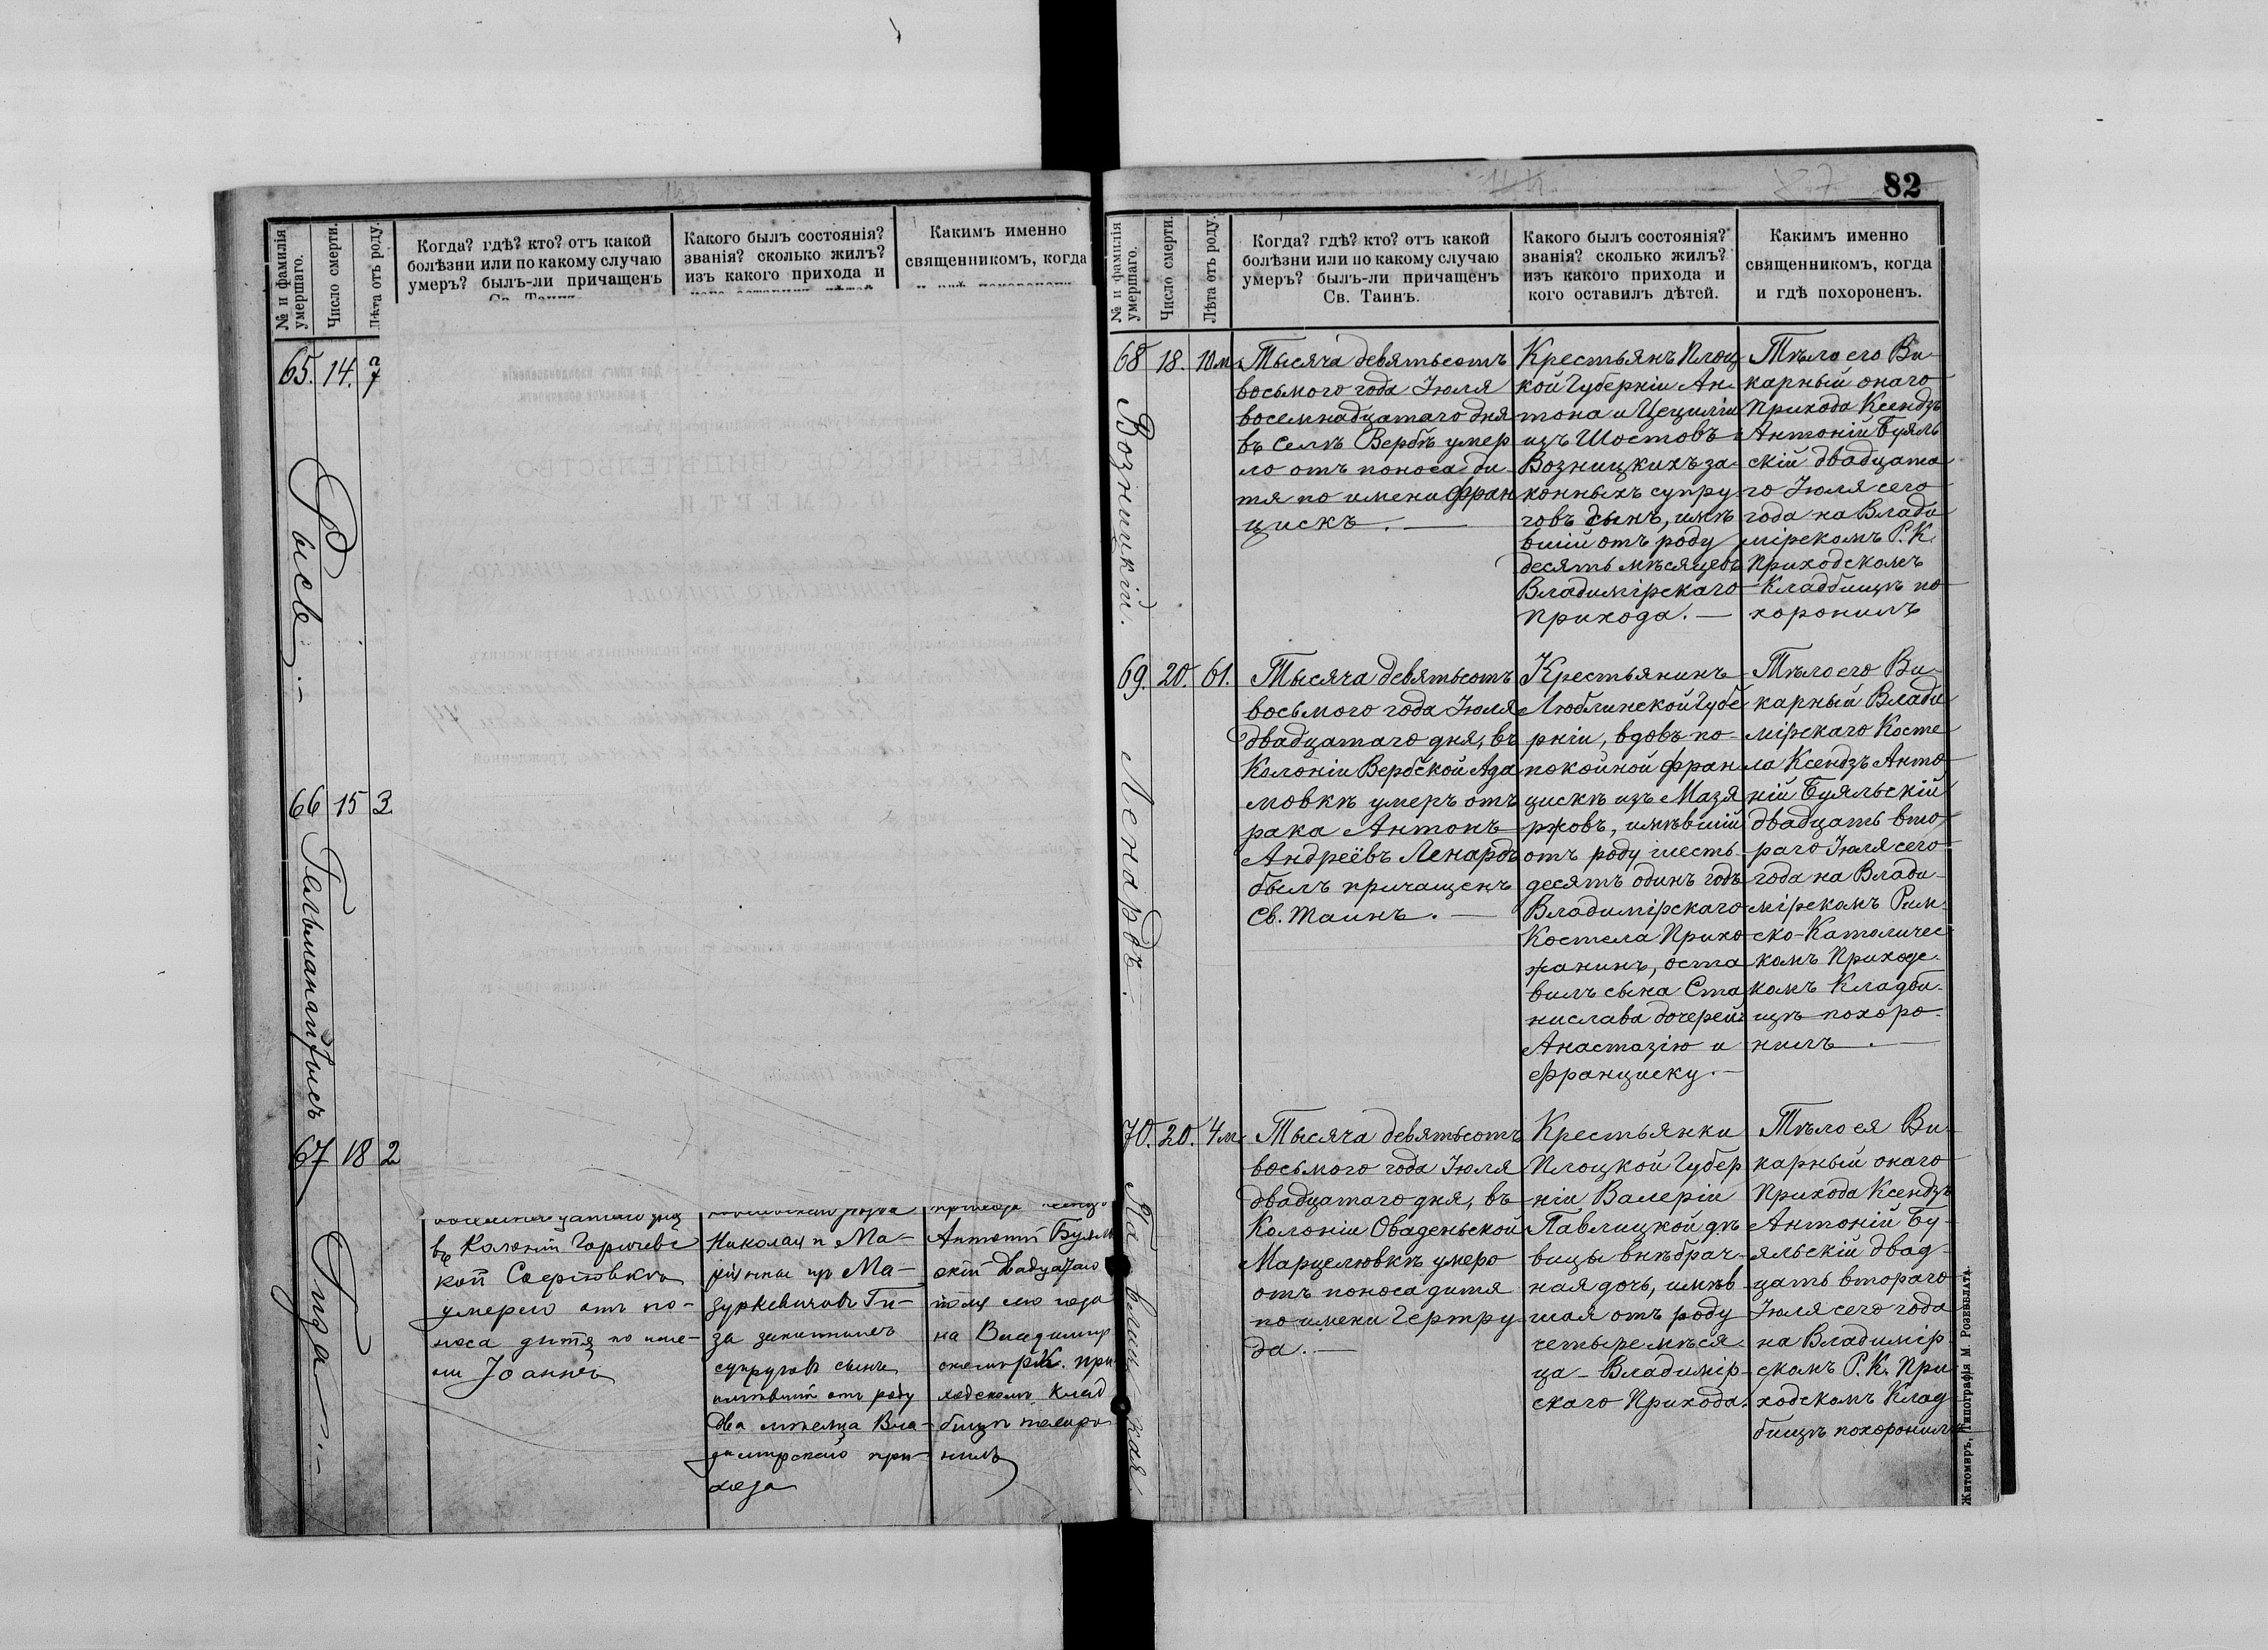 № и фамилія умершаго.
Число смерти.
Лѣта отъ роду.
Когда? гдѣ? кто? отъ какой
болѣзни или по какому случаю
умеръ? былъ-ли причащенъ
Какого былъ состоянія?
званія? сколько жилъ?
изъ какого прихода и
Каким именно
священникомъ, когда
65. 14.
66 15 3
67 18 2
Гиза.
въ Колоніи
умерло отъ по-
носа дитя по име-
ни Іоаннъ
Николая и Ма-
ріянны изъ Ма-
зуркевичовъ Ги-
за законныхъ
супруговъ сынъ
имѣвшій отъ роду
два мѣсяца Вла-
димірскаго при-
хода
Антоній Буяль
скій двадцатаго
іюля сего года
на Владимір
скомъ Р.К. при
ходскомъ клад
бищѣ похоро
нилъ
82
№ и фамилія умершаго.
Число смерти.
Лѣта отъ роду.
Когда? гдѣ? кто? отъ какой
болѣзни или по какому случаю
умеръ? былъ-ли причащенъ
Св. Таинъ.
Какого былъ состоянія?
званія? сколько жилъ?
изъ какого прихода и
кого оставилъ дѣтей.
Какимъ именно
священникомъ, когда
и гдѣ похороненъ.
68 18. 10 м.
Возницкій.
Тысяча девятьсотъ
восьмого года Іюля
восемнадцатаго дня
въ селѣ Вербѣ умер
ло отъ поноса ди-
тя по имени Фран
цискъ. —
Крестьянъ Плоц
кой Губерніи Ан
тона и Цециліи
изъ Шостовъ
Возницкихъ за-
конныхъ супру
говъ сынъ, имѣ
вшій отъ роду
десять мѣсяцевъ
Владимірскаго
Прихода. —
Тѣло его Ви-
карный онаго
Прихода Ксендзъ
Антоній Буяль
скій двадцата
го Іюля сего
года на Влади
мірскомъ Р. К.
Приходскомъ
Кладбищѣ по
хоронилъ
69. 20. 61.
Ленардъ.
Тысяча девятьсотъ
восьмого года Іюля
двадцатаго дня, въ
Колоніи Вербской Ада
мовкѣ умеръ отъ
рака Антонъ
Андреёвъ Ленардъ
былъ причащенъ
Св. Таинъ. —
Крестьянинъ
Люблинской Губе
рніи, вдовъ по-
покойной Фран
цискѣ изъ Мазя
ржовъ, имѣвшій
отъ роду шесть-
десятъ одинъ годъ
Владимірскаго
Костела Прихо
жанинъ, оста
вилъ сына Ста
нислава дочерей:
Анастазію и
Франциску. —
Тѣло его Ви-
карный Влади
мірскаго Косте
ла Ксендзъ Анто
ній Буяльскій
двадцать вто
раго Іюля сего
года на Влади-
мірскомъ Рим-
ско-Католичес
комъ Приходс-
комъ Кладби-
щѣ похоро-
нилъ. —
70. 20. 4 м
Тысяча девятьсотъ
восьмого года Іюля
двадцатаго дня, въ
Колоніи Оваденьской
Марцелювкѣ умеро
отъ поноса дитя
по имени Гертру
да. —
Крестьянки
Плоцкой Губер
ніи Валеріи
Павлицкой дѣ
вицы внѣбрач-
ная дочь, имѣв
шая отъ роду
четыре мѣся-
ца - Владимір-
скаго Прихода.
Тѣло ея Ви-
карный онаго
Прихода Ксендзъ
Антоній Бу-
яльскій двад-
цать втораго
Іюля сего года
на Владимір-
скомъ Р. К. При
ходскомъ Клад-
бищѣ похоронилъ
Житомиръ, Типографія М. Розенблата.